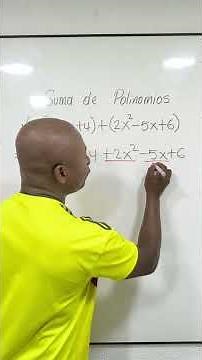 Suma de Polinomios
+4)+(2x²-5x+6)
4 +2x²-5x+6